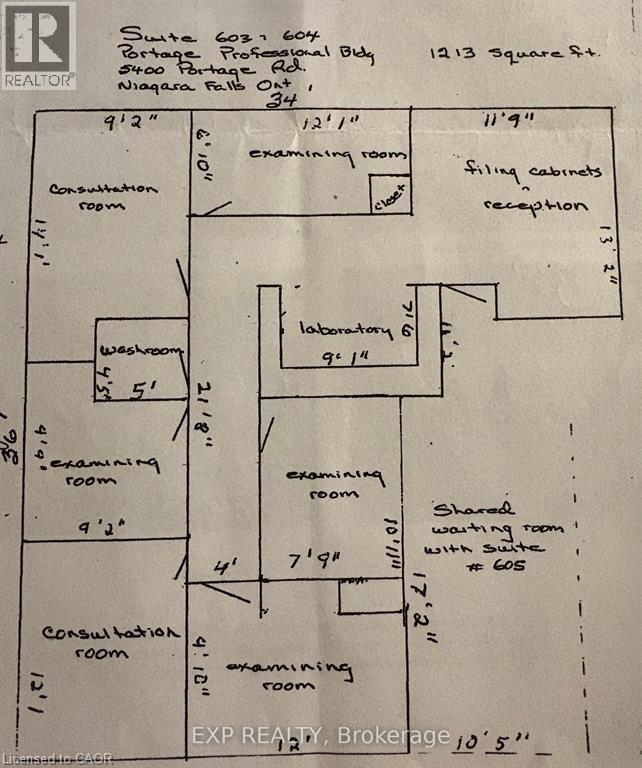 REALTOR®
Suite 603 & 604
Portage Professional Bldg
5400 Portage Rd.
Niagara Falls Ont.
1213 square ft.
34
9'2"
12'1"
11'9"
6'10"
examining room
closet
filing cabinets
reception
13'2"
consultation
room
laboratory
9'1"
washroom
4'5"
5'
21'8"
examining
room
9'2"
36'
examining
room
10'11"
7'9"
4'
Shared
waiting room
with suite
# 605
17'2"
consultation
room
12'1
examining
room
12'
10'5"
EXP REALTY, Brokerage
Licensed to CAOR